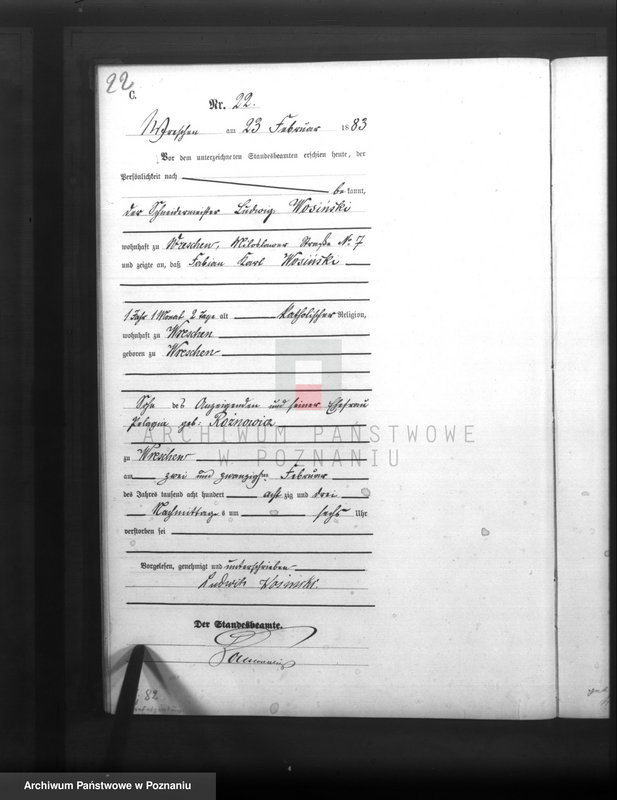 22
C.
Nr. 22.
Wreschen am 23 Februar 1883
Vor dem unterzeichneten Standesbeamten erschien heute, der
Persönlichkeit nach
bekannt,
der Schneidermeister Ludwig Wosiński
wohnhaft zu Wreschen, Miloslawer Straße No 7
und zeigte an, daß Fabian Karl Wosiński
1 Jahr 1 Monat 2 Tage alt katholischer Religion,
wohnhaft zu Wreschen
geboren zu Wreschen
Sohn des Anzeigenden und seiner Ehefrau
Pelagia geb: Rożnowicz
ARCHIWUM PAŃSTWOWE
W POZNANIU
zu Wreschen
am zwei und zwanzigsten Februar
des Jahres tausend acht hundert achtzig und drei
Nachmittags um sechs Uhr
verstorben sei
Vorgelesen, genehmigt und unterschrieben
Ludwik Wosinski.
Der Standesbeamte.
82
Archiwum Państwowe w Poznaniu